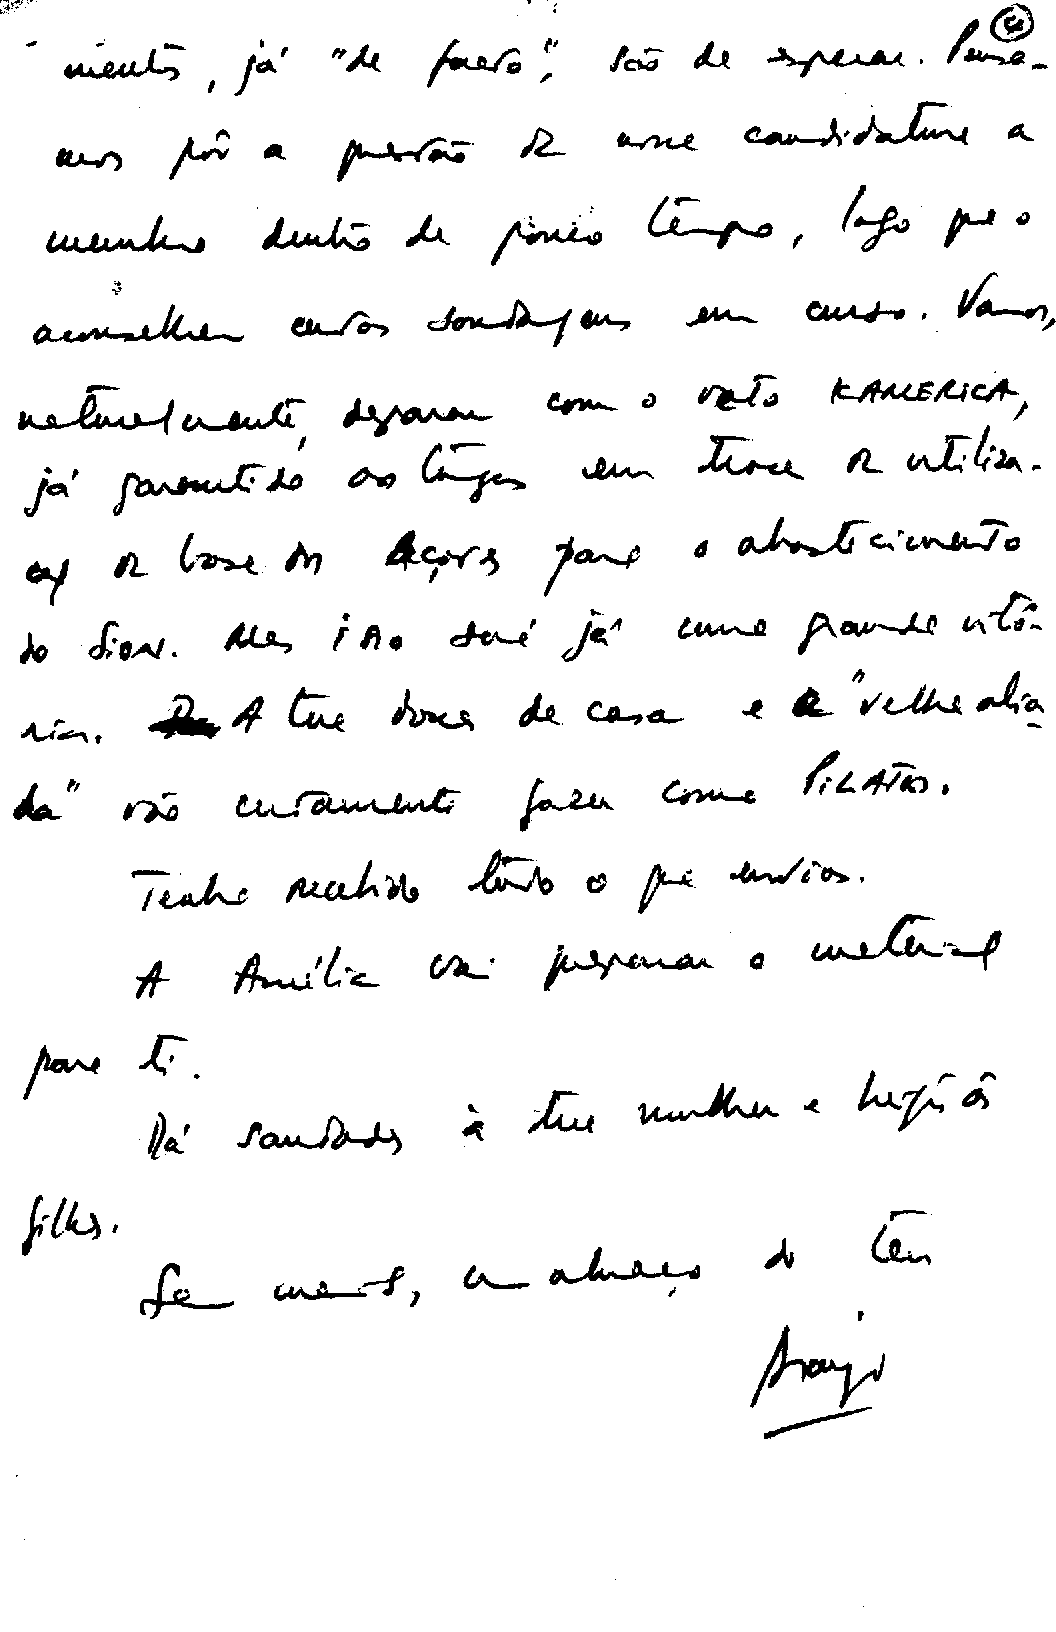 ④
mentos, já "de facto", são de esperar. Pensa-
mos pôr a questão da nossa candidatura a
membro dentro de pouco tempo, logo que o
aconselhem certas sondagens em curso. Vamos,
naturalmente, deparar com o veto KAMERICA,
já garantido aos tugas em troca da utiliza-
ção da base dos Açores para o abastecimento
do Sion. Mas isso será já uma grande vitó-
ria. A tua dona de casa e a "velha alia
da" vão certamente fazer como PILATOS.
Tenho recebido tudo o que envias.
A Amélia vai preparar o material
para ti.
Dá saudades à tua mulher e beijos às
filhas.
Sem mais, um abraço do teu
Araújo